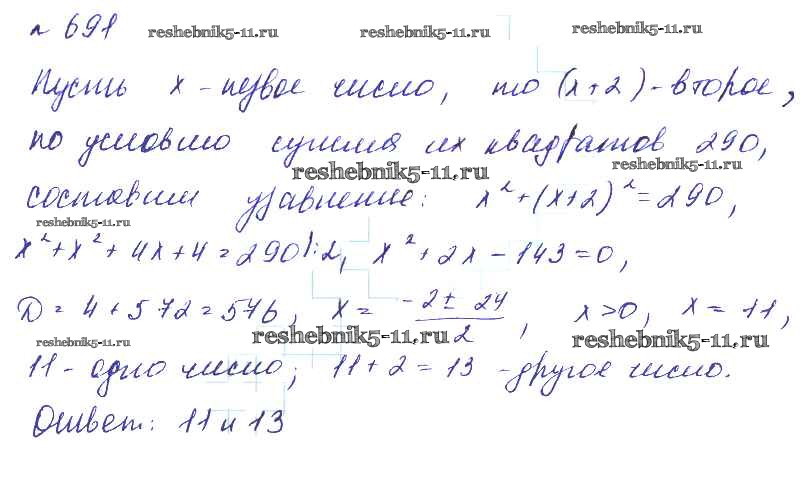 № 691 reshebnik5-11.ru reshebnik5-11.ru reshebnik5-11.ru
Пусть x - первое число, то (x+2) - второе,
по условию сумма их квадратов 290,
reshebnik5-11.ru reshebnik5-11.ru
составим уравнение: x²+(x+2)²=290,
reshebnik5-11.ru reshebnik5-11.ru
x²+x²+4x+4=290|:2, x²+2x-143=0,
D=4+572=576, x=(-2±24)/2, x>0, x=11,
reshebnik5-11.ru reshebnik5-11.ru reshebnik5-11.ru
11 - одно число; 11+2=13 - другое число.
Ответ: 11 и 13